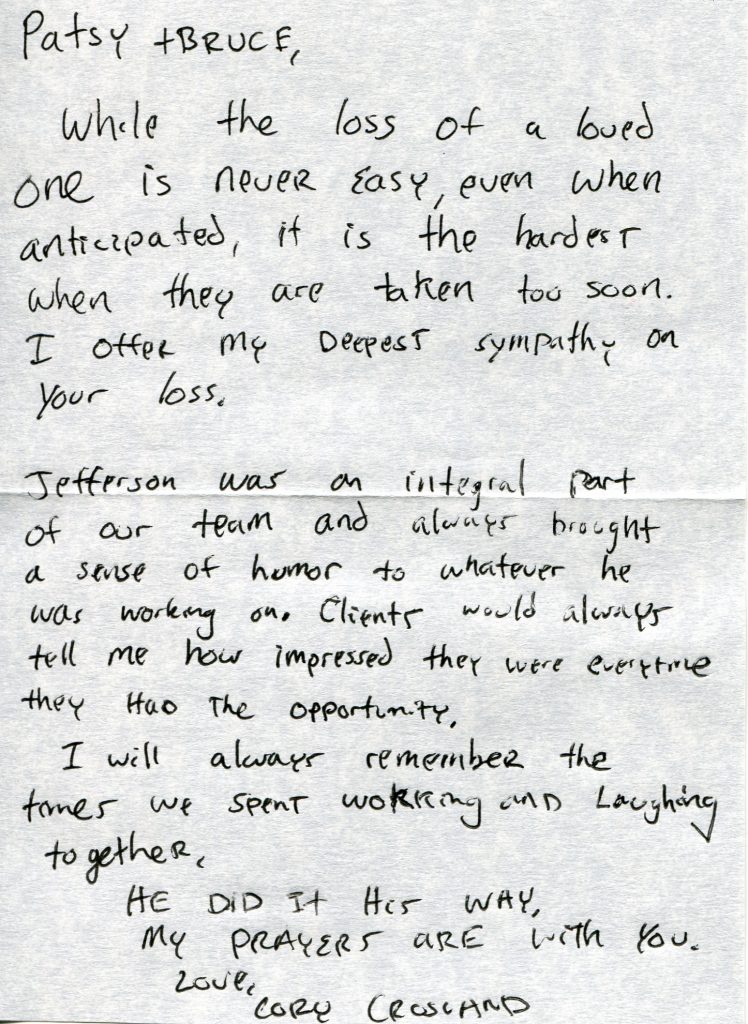 Patsy + BRUCE,
While the loss of a loved
one is never Easy, even when
anticipated, it is the hardest
when they are taken too soon.
I offer my Deepest sympathy on
your loss.
Jefferson was an integral part
of our team and always brought
a sense of humor to whatever he
was working on. Clients would always
tell me how impressed they were everytime
they HAD THE opportunity.
I will always remember the
times we spent working and Laughing
together.
HE DID It His WAY,
My PRAYERS ARE with You.
Love,
CORY CROSLAND